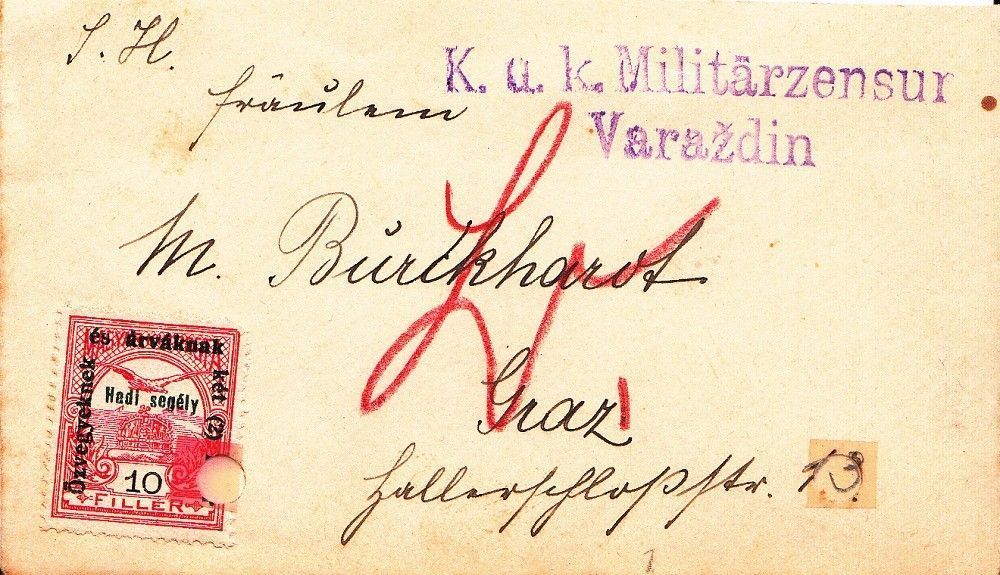 S. H.
Fräulein
K. u. k. Militärzensur
Varaždin
M. Burckhardt
Graz
Hallerschloßstr. 13.
MAGYAR
és árváknak
Özvegyeknek
két (2)
Hadi segély
10
FILLER